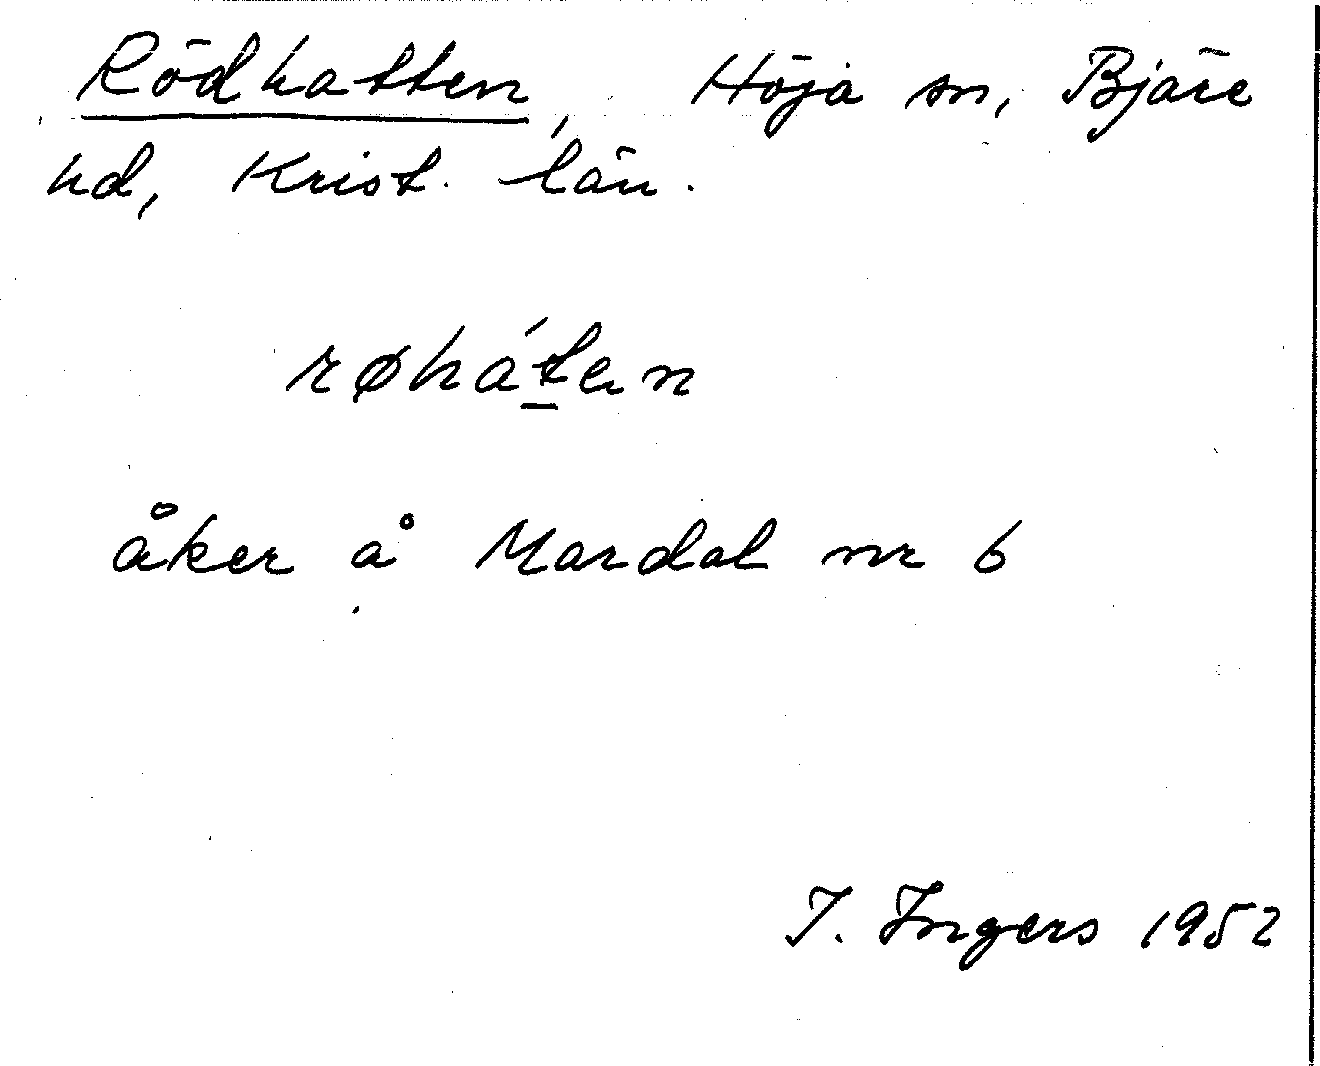 Rödhatten, Höja sn, Bjäre
hd, Krist. län.
røhát̲en
åker å Mardal nr 6
I. Ingers 1952